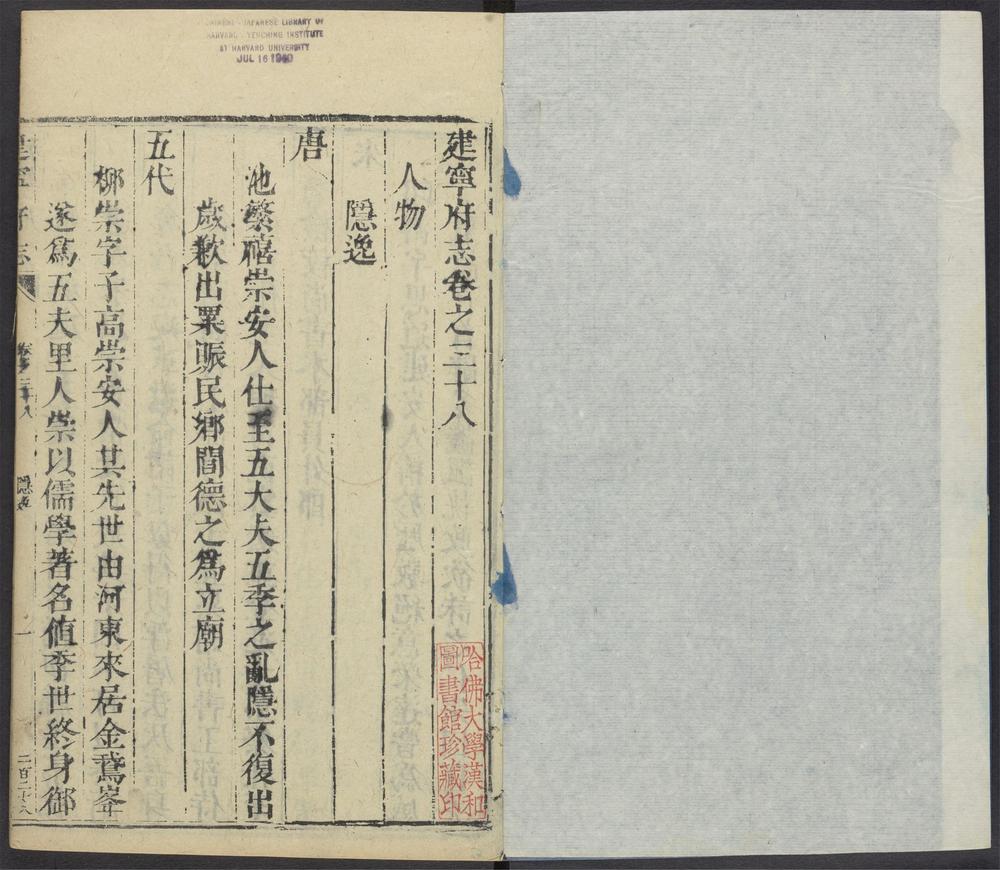 CHINESE - JAPANESE LIBRARY OF
HARVARD - YENCHING INSTITUTE
AT HARVARD UNIVERSITY
JUL 16 1940
建寧府志卷之三十八
人物
隱逸
唐
池繁禧崇安人仕至五大夫五季之亂隱不復出
歲歉出粟賑民鄉閭德之爲立廟
五代
柳崇字子高崇安人其先世由河東來居金鵞峯
遂爲五夫里人崇以儒學著名值季世終身御
建寧府志
卷之三十八
隱逸
一
二百二十六
哈佛大學漢和
圖書館珍藏印